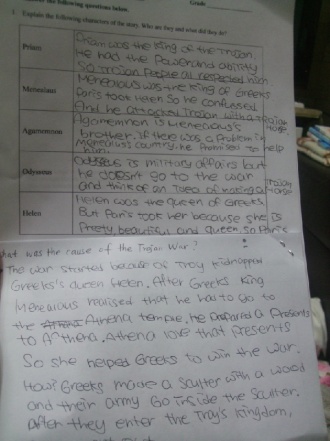 following questions below.
Grade
1. Explain the following characters of the story. Who are they and what did they do?
Priam
was the king of the trojan.
He had the power and ability
So trojan people all respected him
Menealaus
Menealaus was the king of Greeks
Paris took Helen So he confused
And he attacked trojan with a trojan
horse
Agamemnon
Agamemnon is Menealaus's
brother. if there was a problem in
Menealaus country, he promised to help
him.
Odysseus
Odysseus is military affairs but
he doesn't go to the war
and think of an idea of making a trojan
horse
Helen
Helen was the queen of Greeks.
But Paris took her because she is
Pretty, beautiful and queen, so Paris
what was the cause of the Trojan War?
The war started because of Troy kidnapped
Greeks's queen Helen. After Greeks king
Menealaus realised that he has to go to
the Athena temple, he prepared a presents
to Athena. Athena love that presents
So she helped Greeks to win the war.
How? Greeks made a sculter with a wood
and their army go inside the sculter.
After they enter the Troy's kingdom,